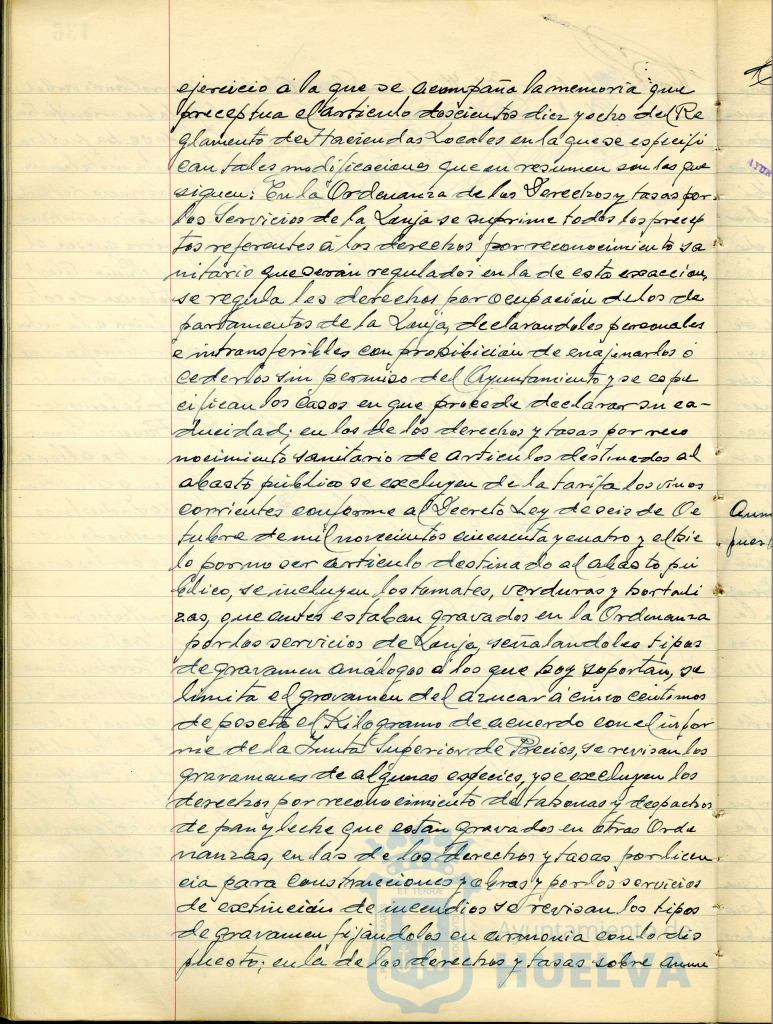 ejercicio á la que se acompaña la memoria que
preceptua el articulo doscientos diez y ocho del Re
glamento de Haciendas Locales en la que se especifi
can tales modificaciones que en resumen son las que
siguen: En la Ordenanza de los Derechos y tasas por
los Servicios de la Lonja se suprime todos los precep
tos referentes á los derechos por reconocimiento sa
nitario que seran regulados en la de esta exaccion,
se regula los derechos por ocupación de los de
partamentos de la Lonja, declarandoles personales
e intransferibles con prohibición de enajenarlos ó
cederlos sin permiso del Ayuntamiento y se espe
cifican los casos en que procede declarar su ca-
ducidad; en las de los derechos y tasas por reco
nocimiento sanitario de articulos destinados al
abasto público se excluyen de la tarifa los vinos
corrientes conforme al Decreto Ley de seis de Oc
tubre de mil novecientos cincuenta y cuatro y el hie
lo por no ser articulo destinado al abasto pú
blico, se incluyen los tomates, verduras y hortali
zas, que antes estaban gravados en la Ordenanza
por los servicios de Lonja, señalandoles tipos
de gravamen análogos á los que hoy soportan, se
limita el gravamen del azucar á cinco centimos
de peseta el Kilogramo de acuerdo con el infor
me de la Junta Superior de Precios, se revisan los
gravamenes de algunas especies, y se excluyen los
derechos por reconocimiento de tahonas y despachos
de pan y leche que estan gravados en otras Orde
nanzas, en las de los derechos y tasas por licen
cia para construcciones y obras y por los servicios
de extinción de incendios se revisan los tipos
de gravamen fijandolos en armonia con lo dis
puesto; en la de los derechos y tasas sobre anun
Ayuntamiento de
HUELVA
136